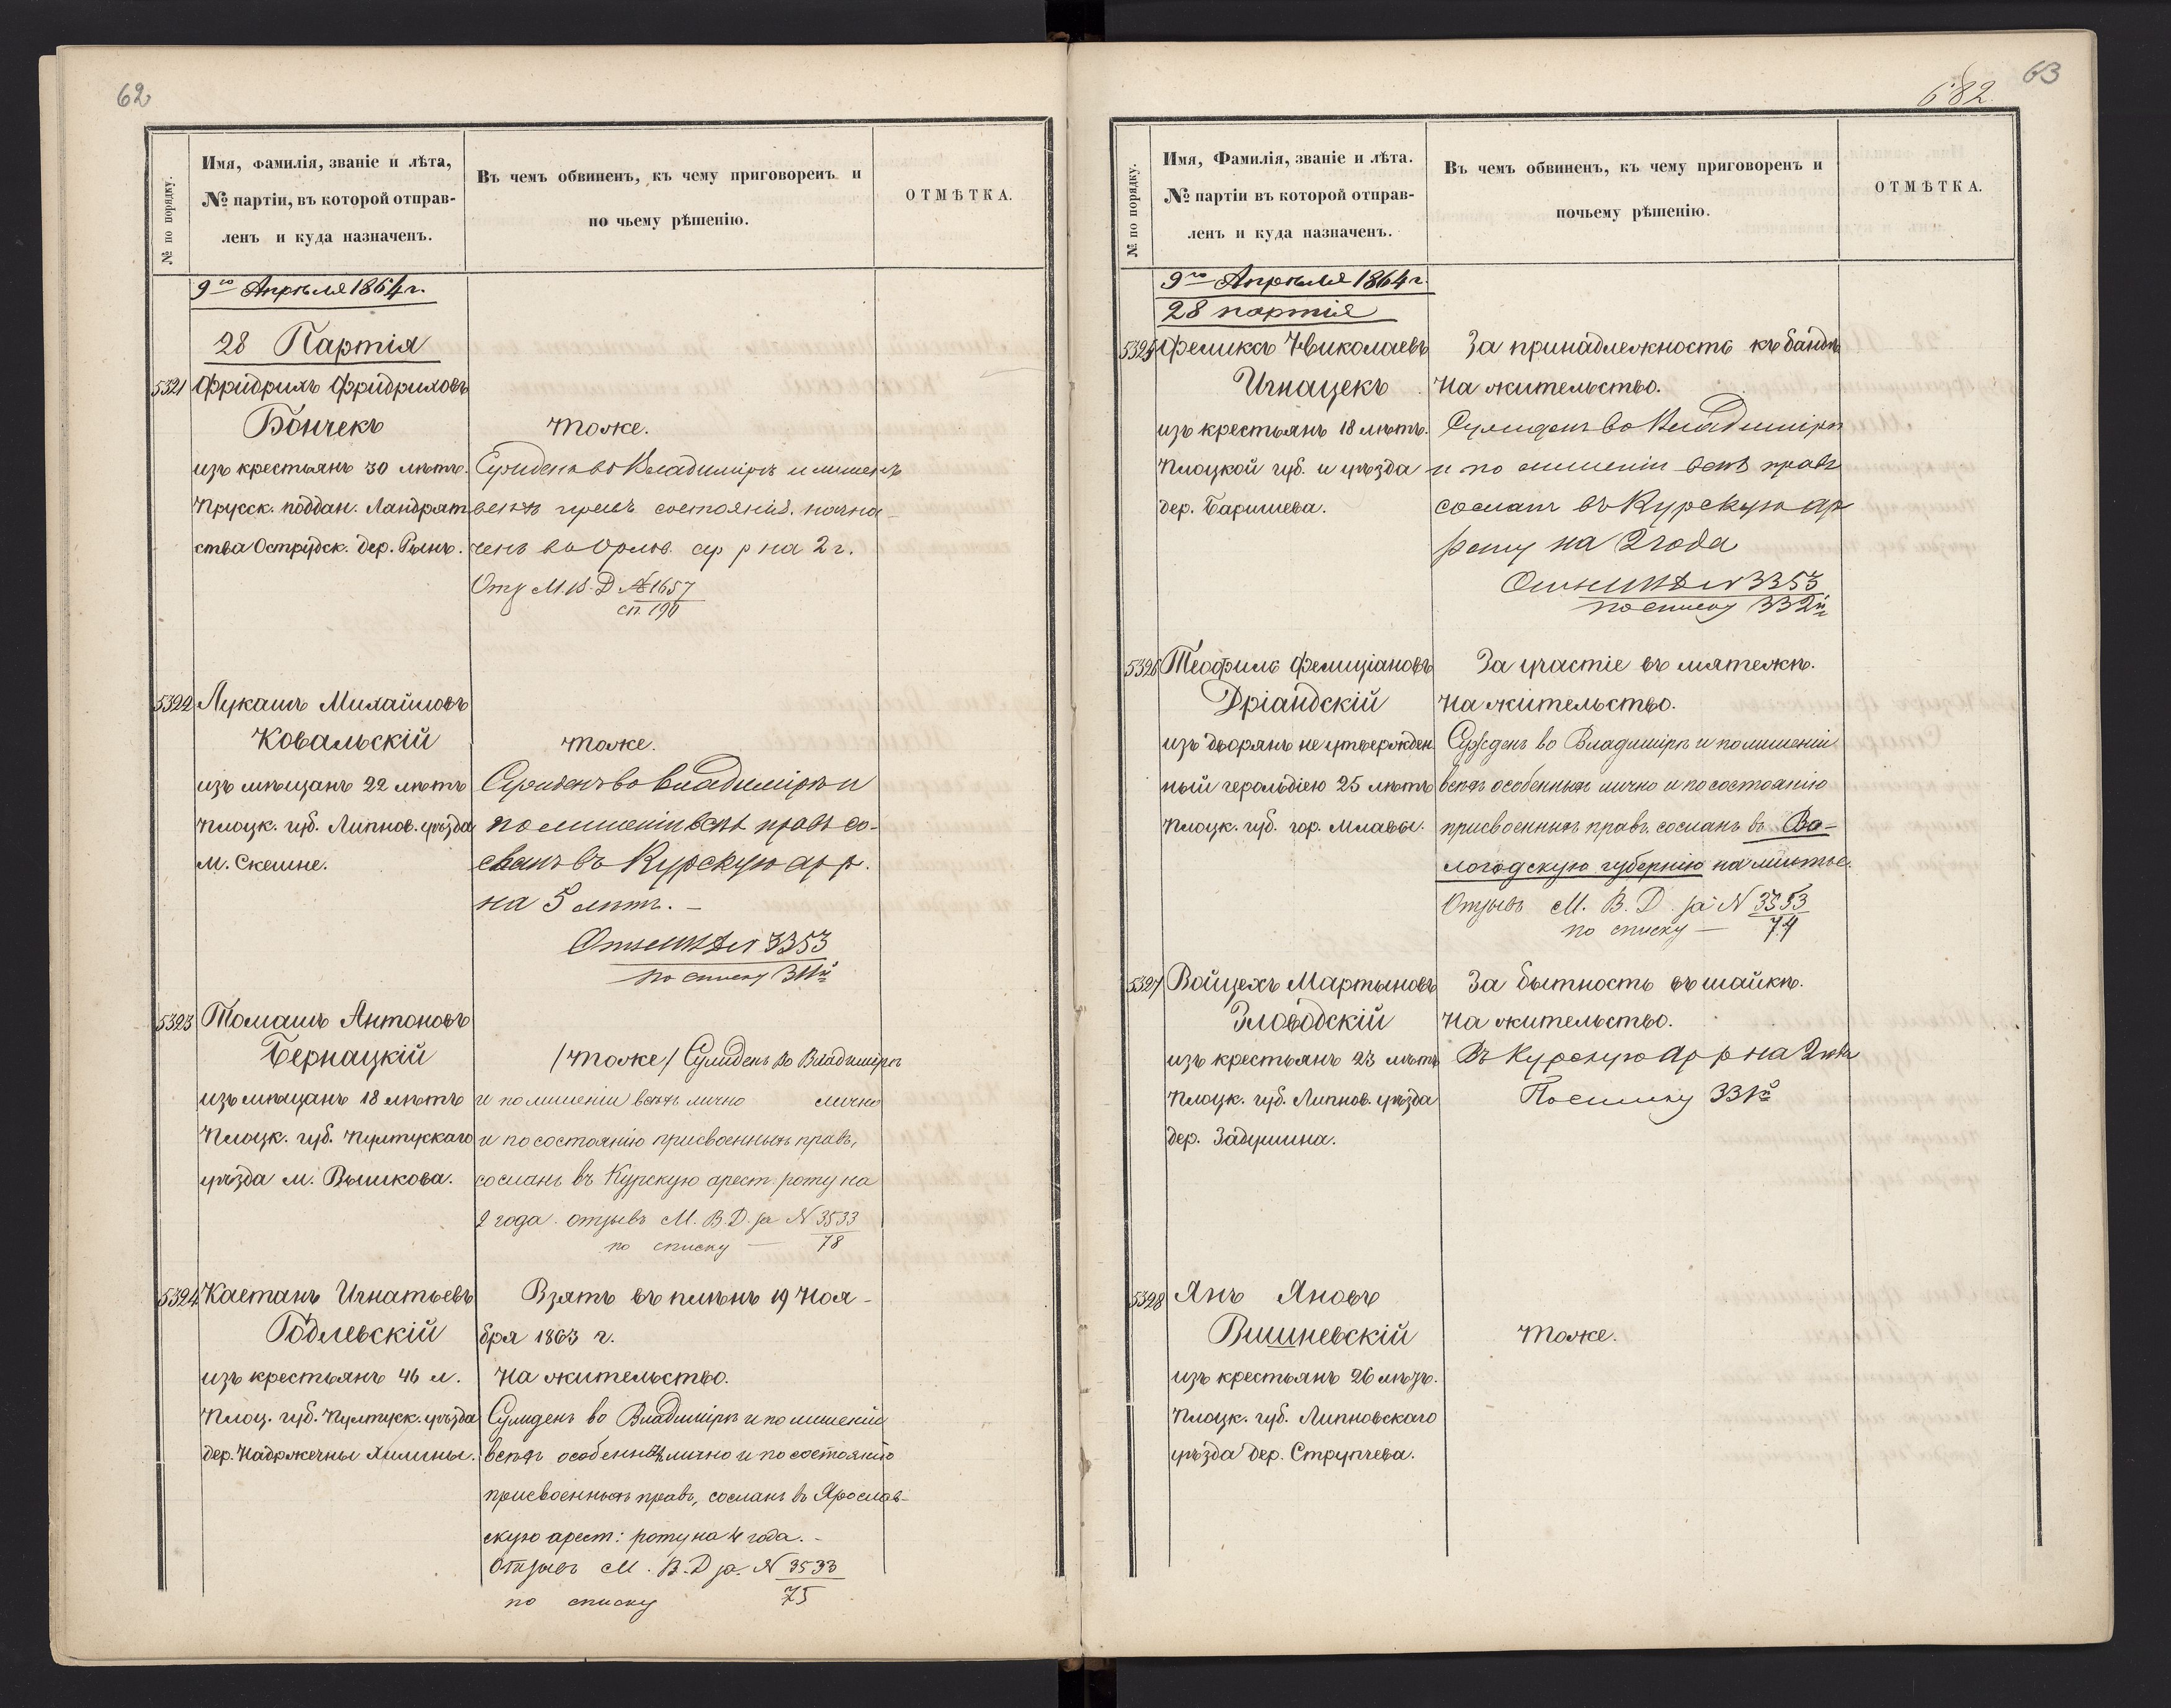 62
№ по порядку.
Имя, фамилія, званіе и лѣта,
№ партіи, въ которой отправ-
ленъ и куда назначенъ.
Въ чемъ обвиненъ, къ чему приговоренъ и
по чьему рѣшенію.
ОТМѢТКА.
9го Апрѣля 1864 г.
28 Партія
5321 Фридрихъ Фридриховъ
Бончекъ
изъ крестьянъ 30 лѣтъ.
Прусск. поддан. Ландрат
ства Острудск. дер. Рынъ.
тоже.
Сужденъ во Владимірѣ и лишенъ
всѣхъ правъ состоянія. назна-
ченъ въ Орлов. ар р на 2 г.
Отз М. В. Д №1657
сп. 190
5322 Лукашъ Михайловъ
Ковальскій
изъ мѣщанъ 22 лѣтъ
Плоцк. губ. Липнов. уѣзда
м. Скемпе.
тоже.
Сужденъ во Владимірѣ и
по лишеніи всѣхъ правъ со-
сланъ въ Курскую ар р.
на 5 лѣтъ. –
Отз МВД № 3353
по списку
5323 Томашъ Антоновъ
Бернацкій
изъ мѣщанъ 18 лѣтъ
Плоцк. губ. Пултускаго
уѣзда м. Вышкова.
/тоже/ Сужденъ во Владимірѣ
и по лишеніи всѣхъ лично лично
и по состоянію присвоенныхъ правъ,
сосланъ въ Курскую арест. роту на
2 года. отзывъ М. В. Д. за N 3533
по списку — 78
5324 Каетанъ Игнатьевъ
Годлевскій
изъ крестьянъ 46 л.
Плоц. губ. Пултуск. уѣзда
дер.
Взятъ въ плѣнъ 19 Ноя-
бря 1863 г.
На жительство.
Сужденъ во Владимірѣ и по лишеніи
всѣхъ особенныхъ лично и по состоянію
присвоенныхъ правъ, сосланъ въ Ярослав-
скую арест: роту на 4 года. –
Отзывъ М. В. Д за. N 3533
по списку 75
63
682.
№ по порядку.
Имя, Фамилія, званіе и лѣта.
№ партіи въ которой отправ-
ленъ и куда назначенъ.
Въ чемъ обвиненъ, къ чему приговоренъ и
почьему рѣшенію.
ОТМѢТКА.
9го Апрѣля 1864 г.
28 партія
5325 Феликсъ Николаевъ
Игнацекъ
изъ крестьянъ 18 лѣтъ.
Плоцкой губ. и уѣзда
дер. Баришева.
За принадлежность къ бандѣ
На жительство.
Сужденъ во Владимірѣ
и по лишеніи всѣхъ правъ
сосланъ въ Курскую ар
роту на 2 года
Отз МВД № 3353
по списку 332й
5326 Теофилъ Фелиціановъ
Дріандскій
изъ дворянъ не утвержден
ный герольдіею 25 лѣтъ
Плоцк. губ. гор. Млавы.
За участіе въ мятежѣ.
На жительство.
Сужденъ во Владимірѣ и по лишеніи
всѣхъ особенныхъ лично и по состоянію
присвоенныхъ правъ. сосланъ въ Во-
логодскую губернію на житье.
Отзывъ М. В. Д. за N 3353
по списку — 74
5327 Войцехъ Мартыновъ
Зловодскій
изъ крестьянъ 23 лѣтъ
Плоцк. губ. Липнов. уѣзда
дер. Задушина.
За бытность въ шайкѣ.
На жительство.
Въ Курскую ар р на 2 года
По списку 331й
5328 Янъ Яновъ
Вишневскій
изъ крестьянъ 26 лѣтъ.
Плоцк. губ. Липновскаго
уѣзда дер. Струпчева.
тоже.